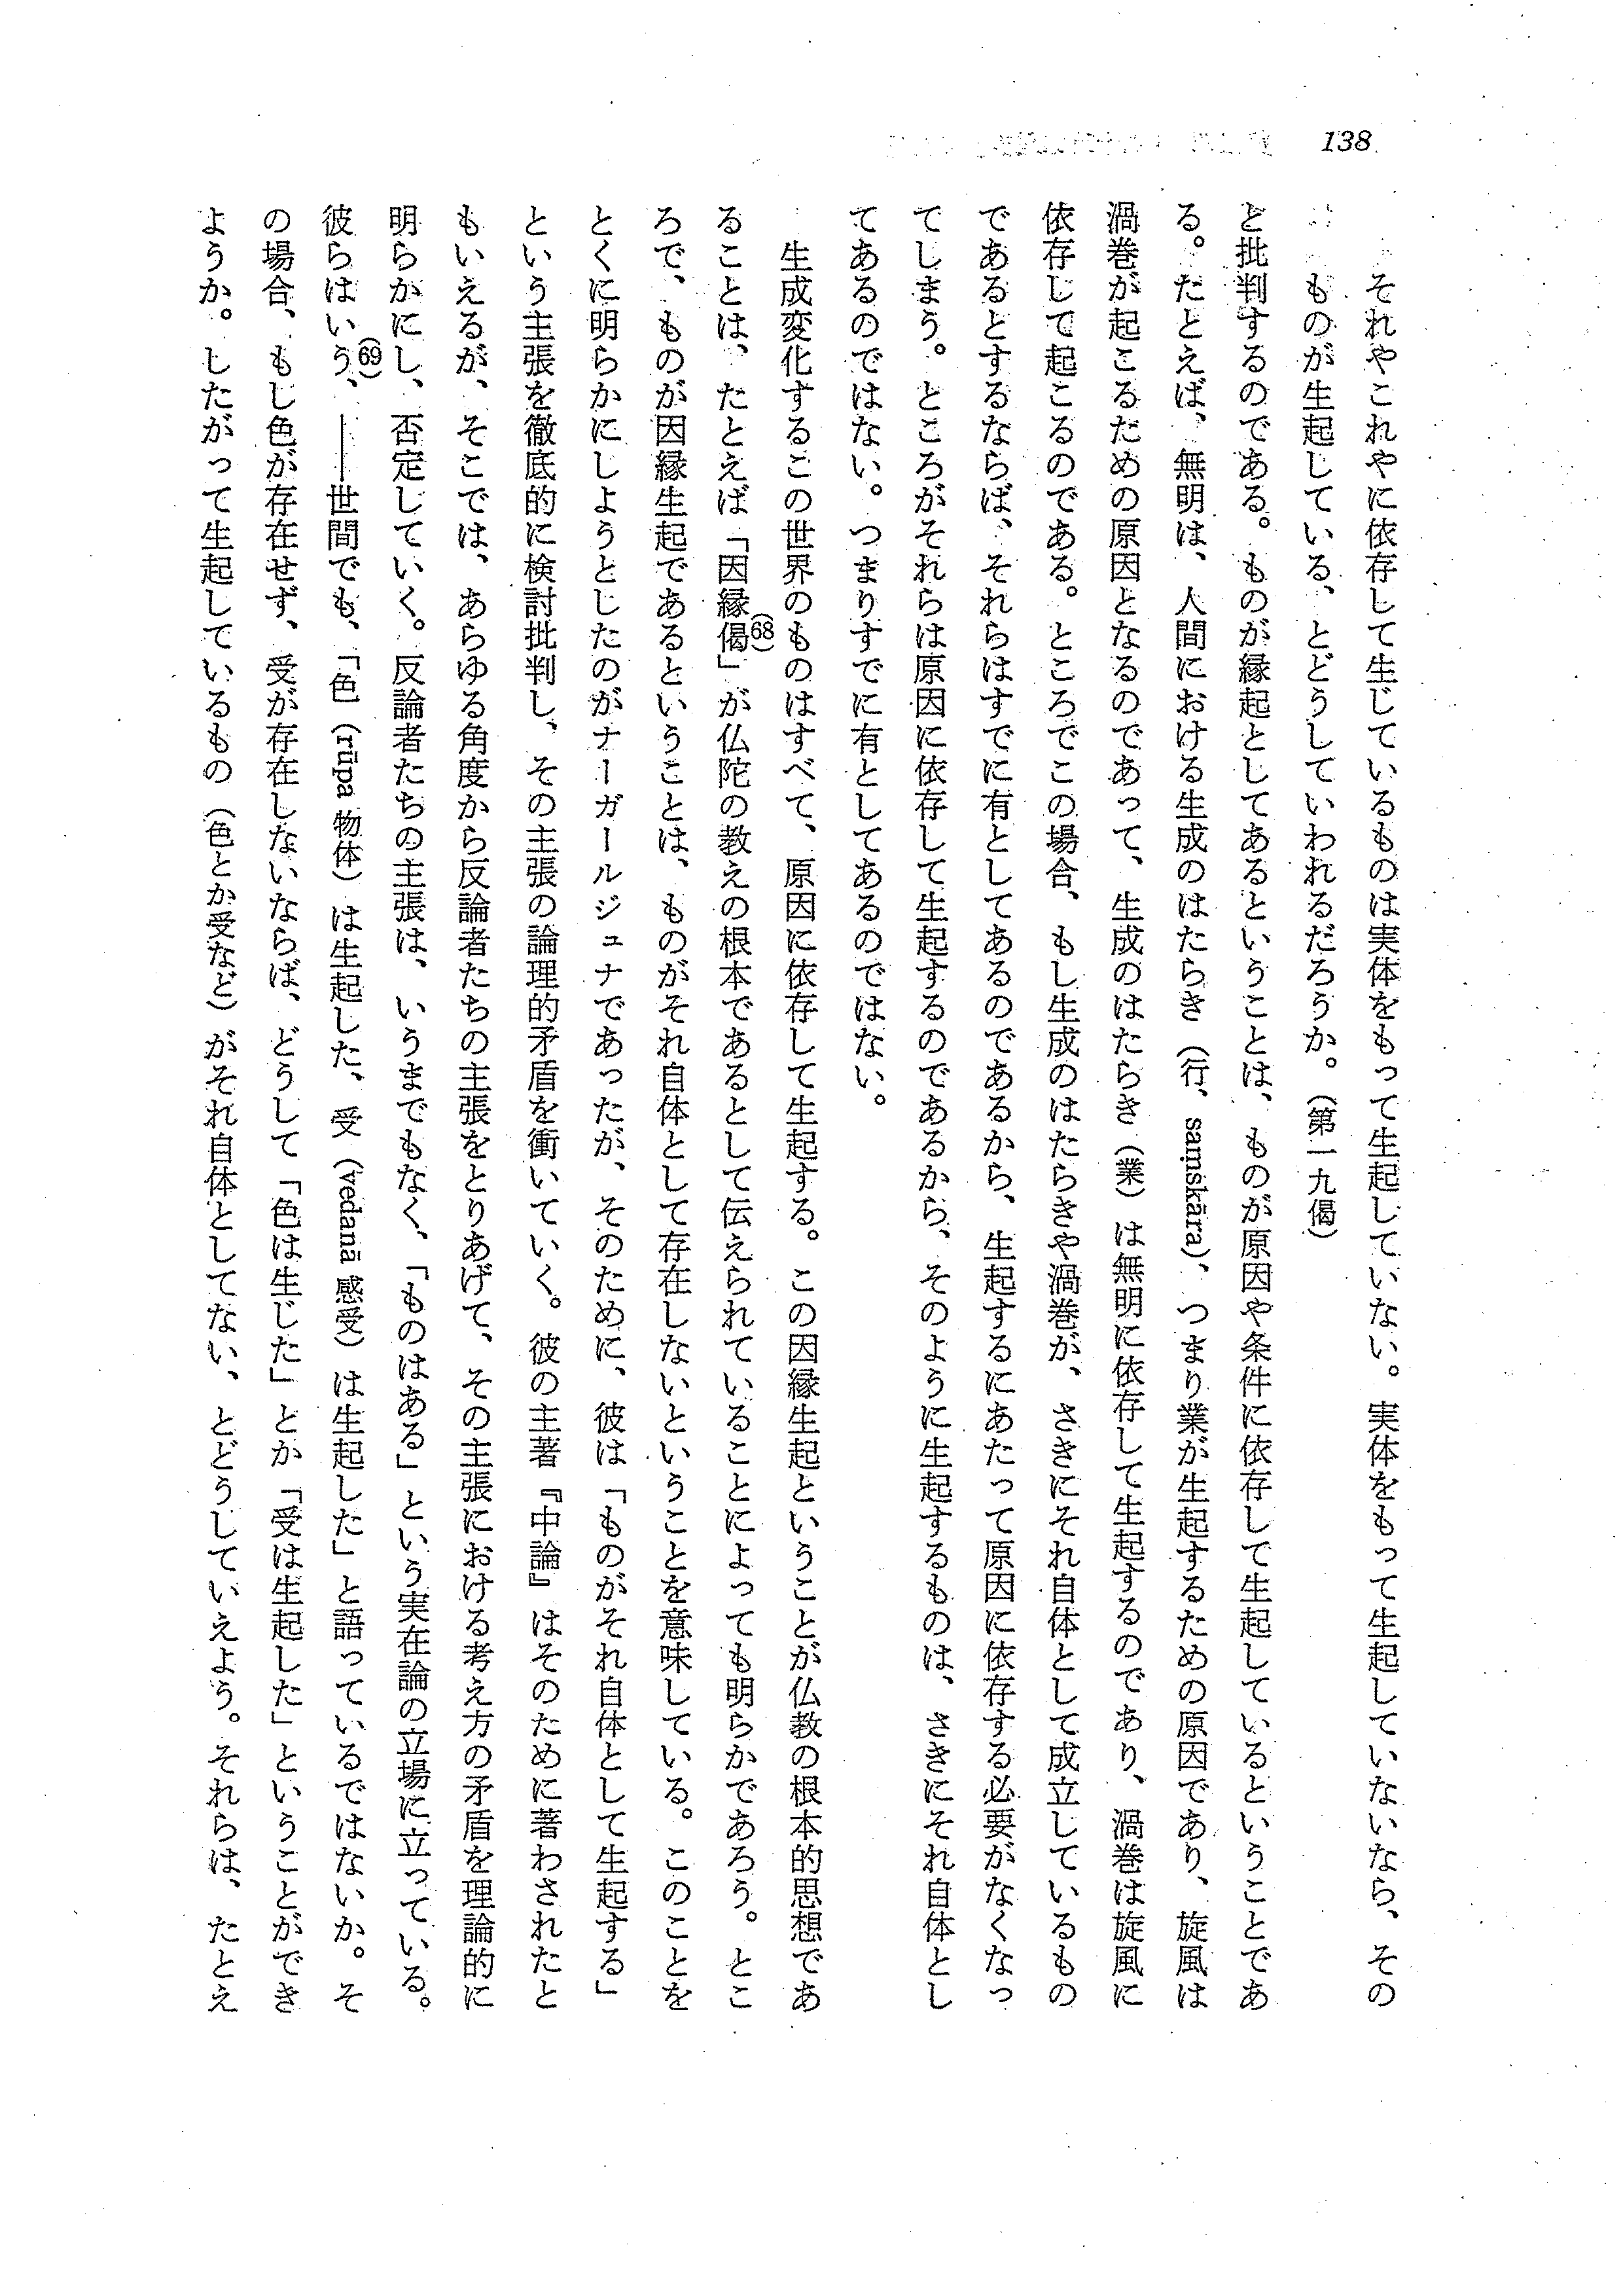 138
それやこれやに依存して生じているものは実体をもって生起していない。実体をもって生起していないなら、その
ものが生起している、とどうしていわれるだろうか。（第一九偈）
と批判するのである。ものが縁起としてあるということは、ものが原因や条件に依存して生起しているということであ
る。だとえば、無明は、人間における生成のはたらき（行、saṃskāra）、つまり業が生起するための原因であり、旋風は
渦巻が起こるための原因となるのであって、生成のはたらき（業）は無明に依存して生起するのであり、渦巻は旋風に
依存して起こるのである。ところでこの場合、もし生成のはたらきや渦巻が、さきにそれ自体として成立しているもの
であるとするならば、それらはすでに有としてあるのであるから、生起するにあたって原因に依存する必要がなくなっ
てしまう。ところがそれらは原因に依存して生起するのであるから、そのように生起するものは、さきにそれ自体とし
てあるのではない。つまりすでに有としてあるのではない。
生成変化するこの世界のものはすべて、原因に依存して生起する。この因縁生起ということが仏教の根本的思想であ
ることは、たとえば「因縁偈(68)」が仏陀の教えの根本であるとして伝えられていることによっても明らかであろう。とこ
ろで、ものが因縁生起であるということは、ものがそれ自体として存在しないということを意味している。このことを
とくに明らかにしようとしたのがナーガールジュナであったが、そのために、彼は「ものがそれ自体として生起する」
という主張を徹底的に検討批判し、その主張の論理的矛盾を衝いていく。彼の主著『中論』はそのために著わされたと
もいえるが、そこでは、あらゆる角度から反論者たちの主張をとりあげて、その主張における考え方の矛盾を理論的に
明らかにし、否定していく。反論者たちの主張は、いうまでもなく、「ものはある」という実在論の立場に立っている。
彼らはいう(69)、――世間でも、「色（rūpa 物体）は生起した、受（vedanā 感受）は生起した」と語っているではないか。そ
の場合、もし色が存在せず、受が存在しないならば、どうして「色は生じた」とか「受は生起した」ということができ
ようか。したがって生起しているもの（色とか受など）がそれ自体としてない、とどうしていえよう。それらは、たとえ